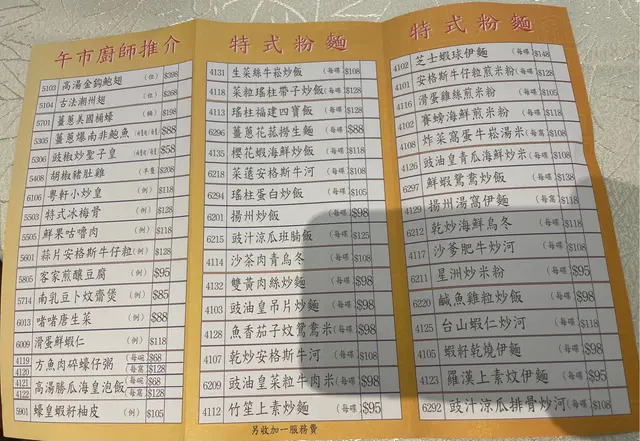 午市廚師推介
5103 高湯金鈎鮑翅 (位) $398
5104 古法潮州翅 (位) $268
5701 薑蔥美國桶蠔 (桶) $198
5305 薑蔥爆南非鮑魚 $88
5306 豉椒炒聖子皇 $58
5408 胡椒豬肚雞 (半隻) $208
6106 粵軒小炒皇 (例) $118
5503 特式冰梅骨 (例) $108
5505 鮮果咕嚕肉 (例) $118
5601 蒜片安格斯牛仔粒 (例) $128
5805 客家煎釀豆腐 (例) $95
5714 南乳豆卜炆齋煲 (例) $85
6013 啫啫唐生菜 (例) $88
6009 滑蛋鮮蝦仁 (例) $118
4119 方魚肉碎蠔仔粥 (每碗) $68
4120 (每窩) $128
4121 高湯勝瓜海皇泡飯 (每碗) $68
4122 (每窩) $128
5901 蠔皇蝦籽柚皮 (例) $105
特式粉麵
4131 生菜絲牛崧炒飯 (每碟) $108
4118 菜粒瑤柱帶子炒飯 (每碟) $108
4113 瑤柱福建四寶飯 (每碟) $128
6296 薑蔥花菰撈生麵 (每碟) $88
4135 櫻花蝦海鮮炒飯 (每碟) $118
6218 菜薳安格斯牛河 (每碟) $108
6294 瑤柱蛋白炒飯 (每碟) $105
6201 揚州炒飯 (每碟) $98
6215 豉汁涼瓜班腩飯 (每碟) $125
4114 沙茶肉青烏冬 (每碟) $118
4132 雙黃肉絲炒麵 (每碟) $98
4103 豉油皇吊片炒麵 (每碟) $98
4128 魚香茄子炆鴛鴦米 (每碟) $98
4107 乾炒安格斯牛河 (每碟) $108
6209 豉油皇菜粒牛肉米 (每碟) $98
4112 竹笙上素炒麵 (每碟) $95
另收加一服務費
特式粉麵
4102 芝士蝦球伊麵 (每碟) $148
4101 安格斯牛仔粒煎米粉 (每碟) $128
4116 滑蛋雞絲煎米粉 (每碟) $105
4102 賽螃海鮮煎米粉 (每碟) $118
4108 炸菜窩蛋牛崧湯米 (每窩) $108
4126 豉油皇青瓜海鮮炒米 (每碟) $108
6297 鮮蝦鴛鴦炒飯 (每碟) $138
4129 揚州湯窩伊麵 (每窩) $118
6212 乾炒海鮮烏冬 (每碟) $118
4117 沙爹肥牛炒河 (每碟) $118
6211 星洲炒米粉 (每碟) $95
6220 鹹魚雞粒炒飯 (每碟) $98
4125 台山蝦仁炒河 (每碟) $118
4105 蝦籽乾燒伊麵 (每碟) $98
4123 羅漢上素炆伊麵 (每碟) $95
6292 豉汁涼瓜排骨炒河 (每碟) $108